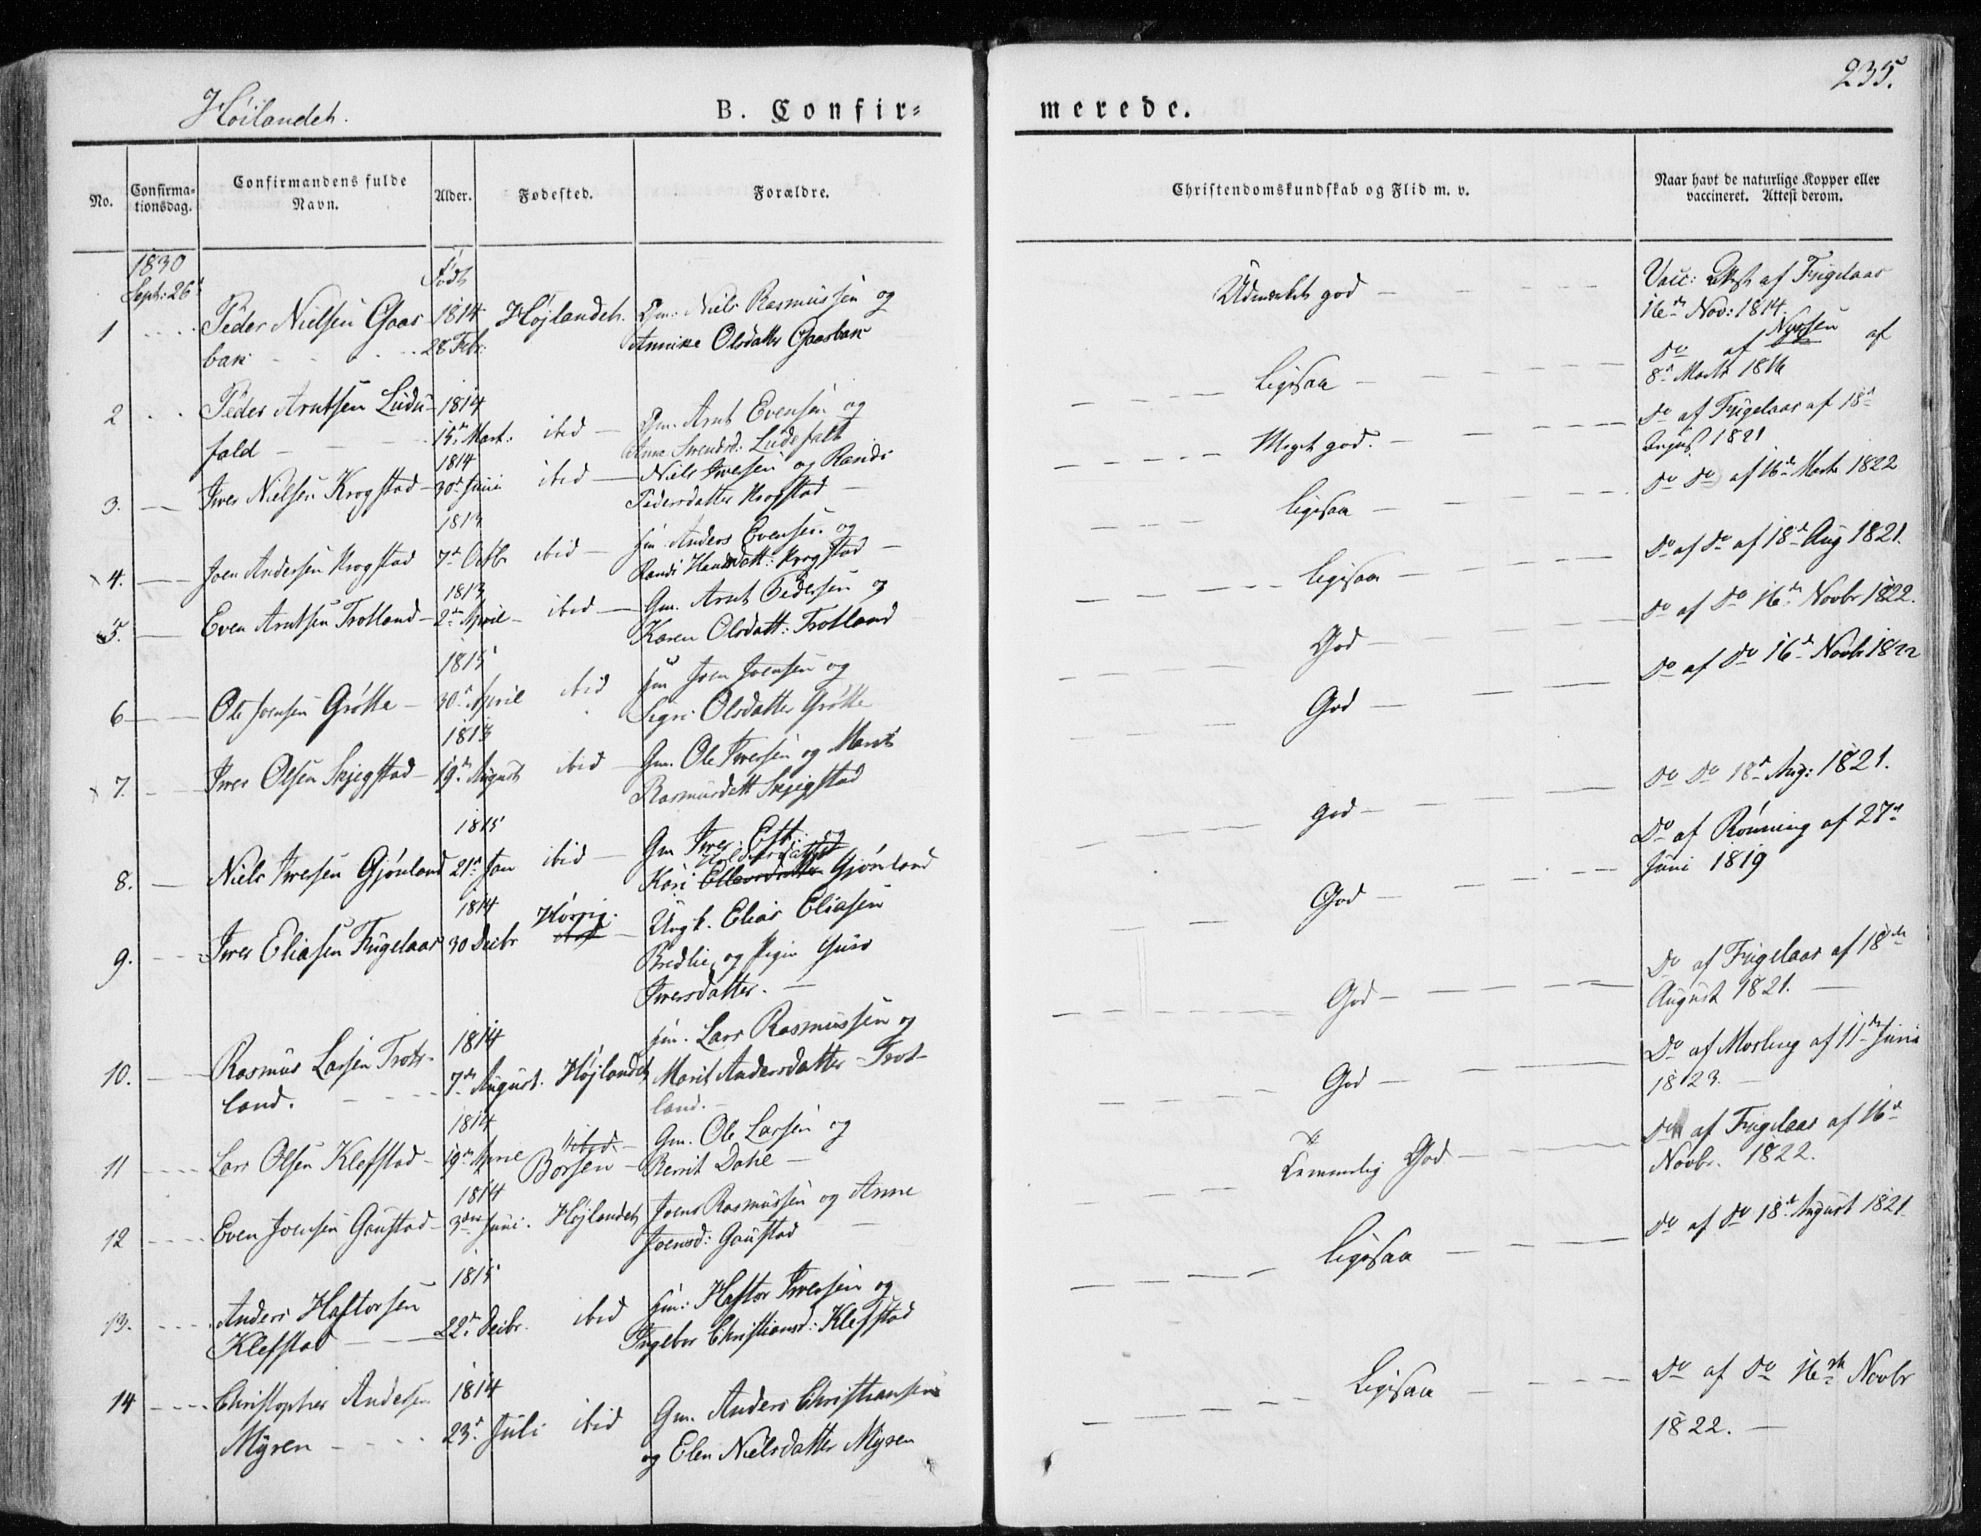 235.
Høilandet.
B. Confir-
merede.
No.
Confirma-
tionsdag.
Confirmandens fulde
Navn.
Alder.
Fødested.
Forældre.
Christendomskundskab og Flid m. v.
Naar havt de naturlige Kopper eller
vaccineret. Attest derom.
1830
Septr: 26d
Født
1 Peder Nielsen Gaas- 1814 Højlandet. Gm: Niels Rasmussen og
bak 28 Febr: Annike Olsdatter Gaasbak
Udmærket god
Vacc: Attest af Fugelaas
16de Nov: 1814.
2 Peder Arntsen Lude- 1814
fald 15d Mart: ibid Gm. Arnt Evensen og
Anne Svendsd: Ludefald
Ligesaa
Do af Nyssen af
8d Marts 1816
3. Iver Nielsen Krogstad 1814
30d Juni ibid Niels Iversen og Randi
Pedersdatter Krogstad
Meget god.
Do af Fugelaas af 18d
August 1821
4. Joen Andersen Krogstad 1813
7d Octbr ibid Hm Anders Evensen og
Randi Hansdatt: Krogstad
ligesaa
Do Do af 16d Marts 1822
5. Even Arntsen Trotland 1813
2d April ibid Gm. Arnt Pedersen og
Karen Olsdatt: Trotland
ligesaa
Do af Do af 18d Aug 1821.
6 Ole Joensen Grøtte 1815
30d April ibid Hm Joen Joensen og
Segri Olsdatter Grøtte
God
Do af Do 16d Novbr 1822.
7. Iver Olsen Skjegstad 1813
19d August ibid Gm. Ole Iversen og Marit
Rasmusdatt Skjegstad
God
Do af Do 16d Novbr 1822
8. Niels Iversen Gjønland 1815
21d Jan ibid Gm Iver
Kari Ellevsdatter Gjønland
god
Do Do 18d Aug: 1821.
9. Iver Eliasen Fugelaas 1814
30 Decbr ibid Ungk. Elias Eliasen
Bredlie, og Pigen Guro
Iversdatter.
God
Do af Rønning af 27d
Juni 1819
10. Rasmus Larsen Trot- 1814
land. 7de August. Højlandet Hm. Lars Rasmussen og
Marit Andersdatter Trot-
land.
God
Do af Fugelaas af 18de
August 1821.
11 Lars Olsen Klefstad 1814
19de April ibid
Børsen Gm. Ole Larsen og
Berrit Dahl
God
Do af Morling af 11de Junii
1823.
12 Even Joensen Gaustad 1814
3die Juni. Højlandet Joens Rasmussen og Anne
Joensd: Gaustad
Temmelig God
Do af Fugelaas af 16d
Novbr. 1822.
13. Anders Haftorsen 1815
Klefstad 22d Decbr. ibid Hm: Haftor Iversen og
Ingebor Christiansd: Klefstad
ligesaa
Do af Do 18d August 1821.
14 Christopher Andersen 1814
Myren 23d Juli ibid Gm. Anders Christiansen
og Elen Nielsdatter Myren
Ligesaa
Do af Do 16de Novbr
1822.